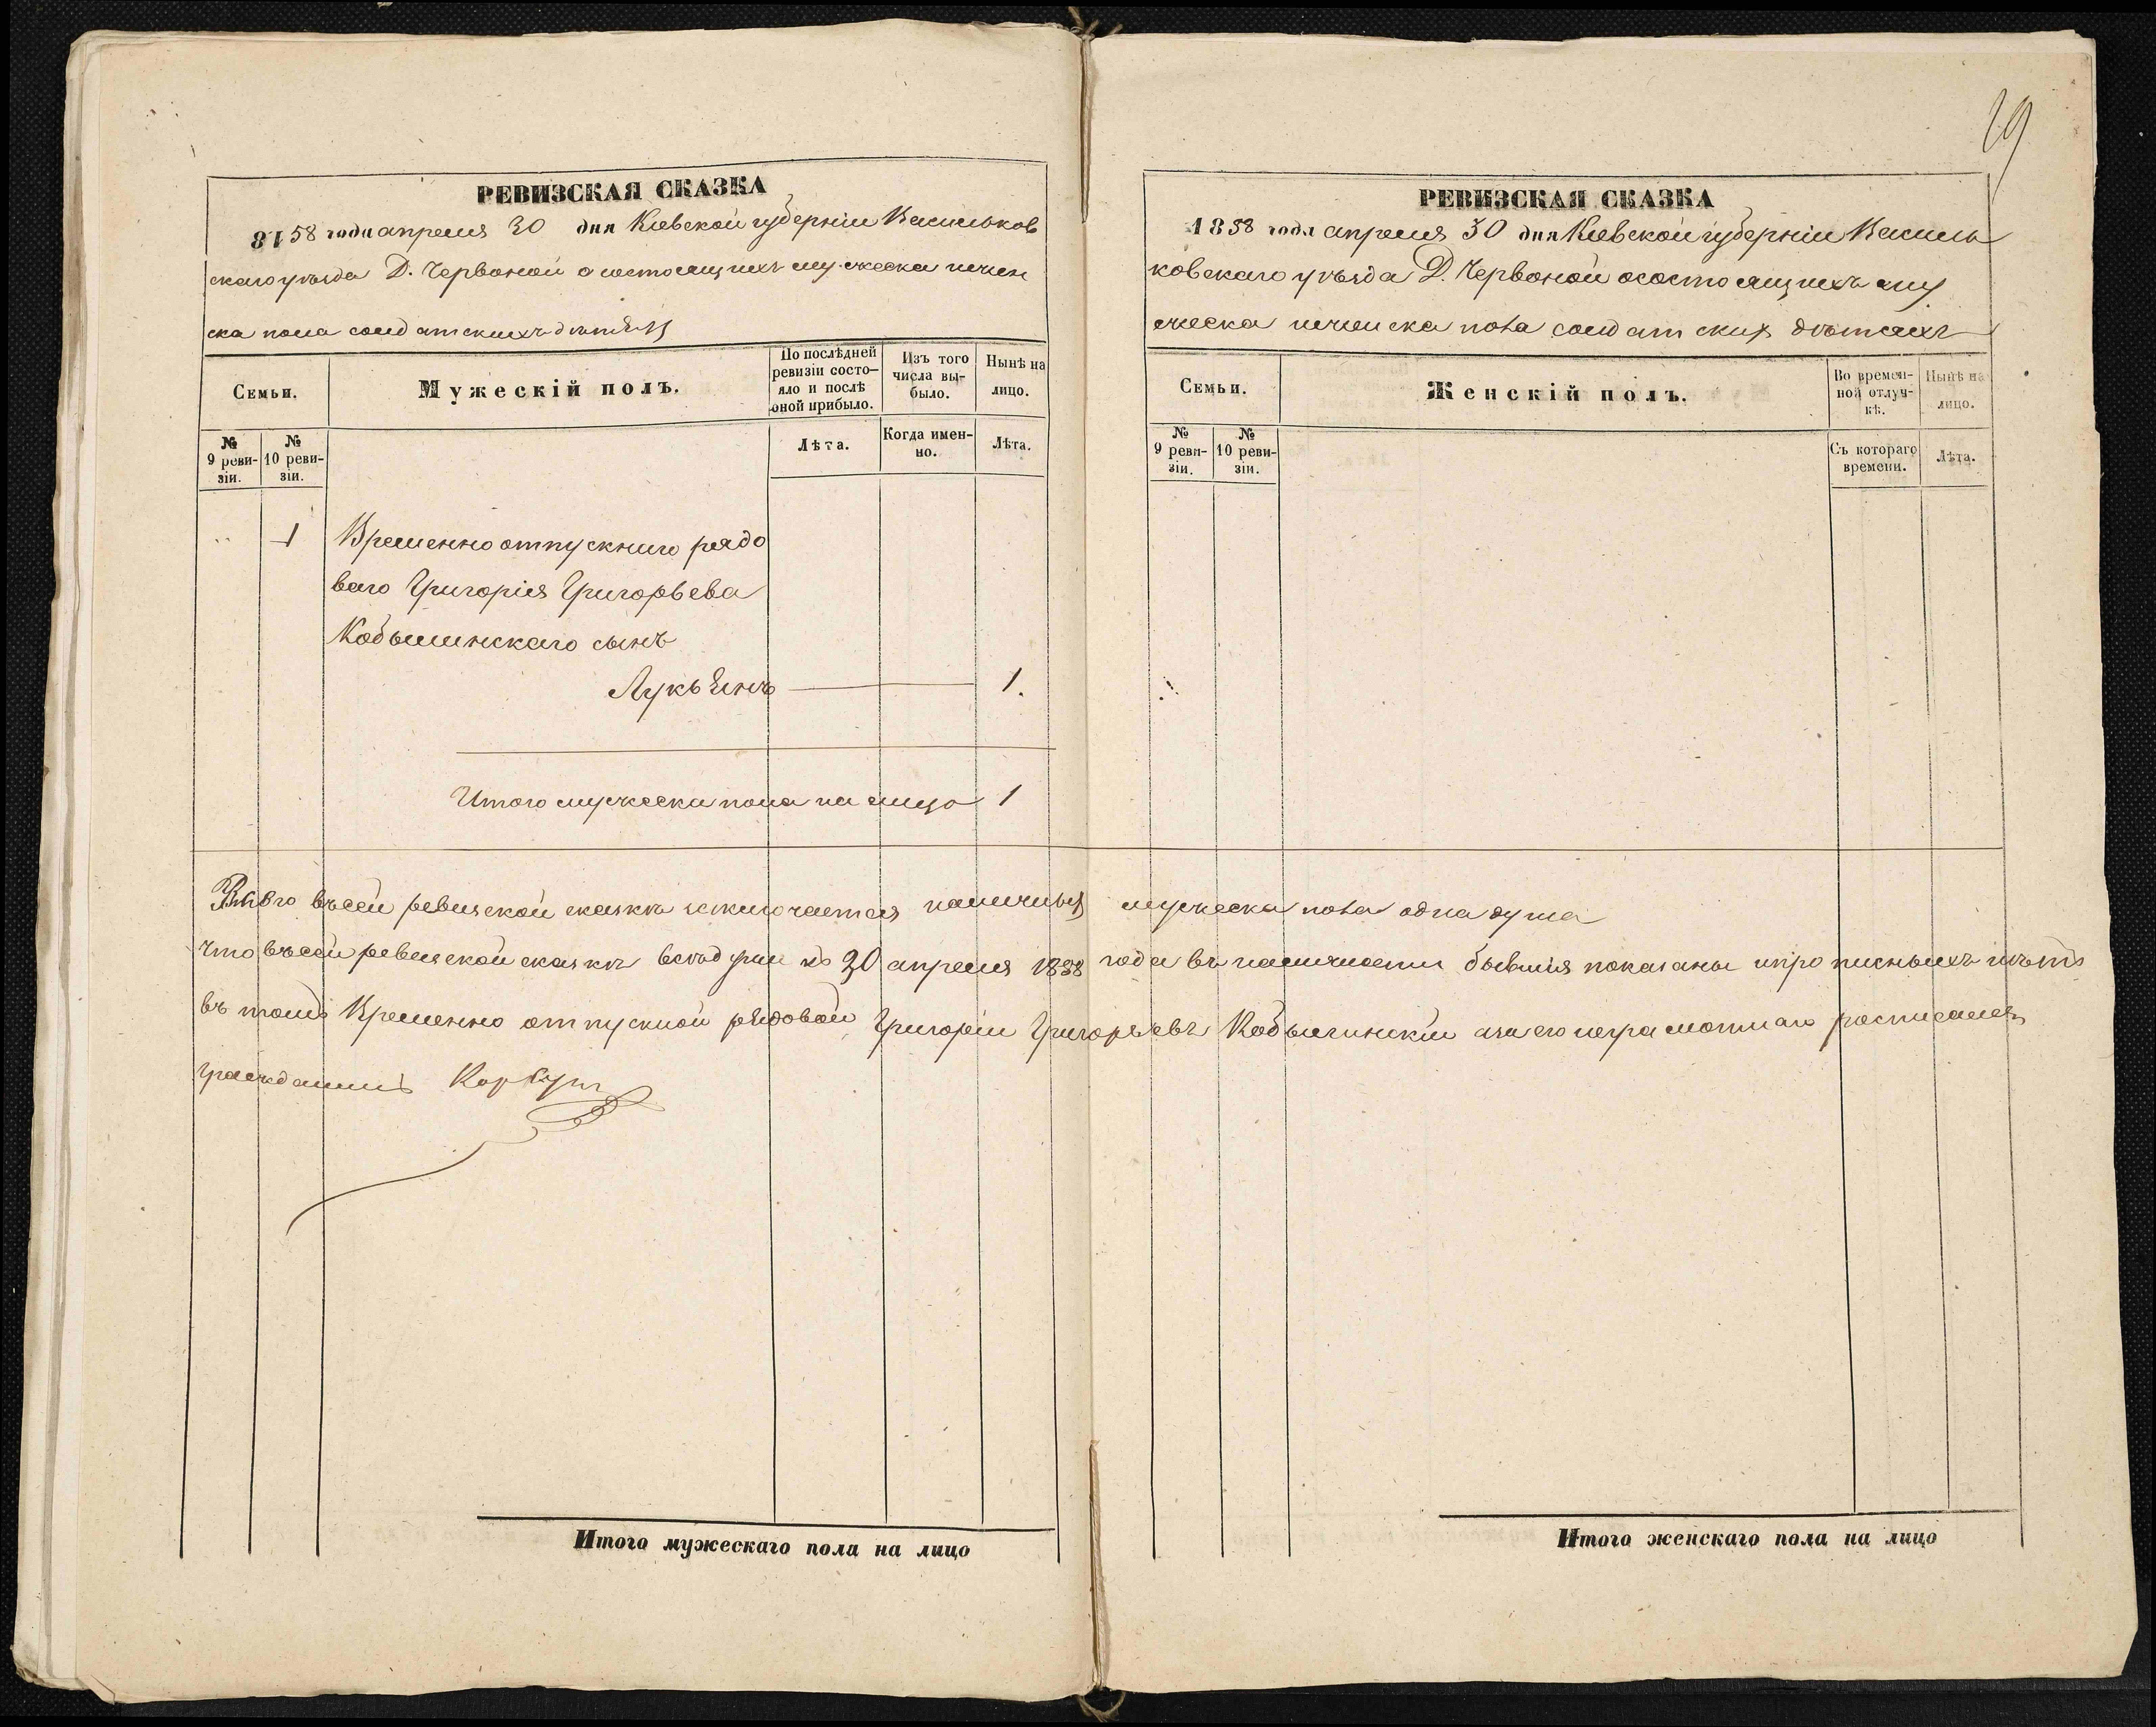 19
РЕВИЗСКАЯ СКАЗКА
1858 года апреля 30 дня Киевской губерніи Васильков
скаго уѣзда Д. Червоной о состоящихъ мужеска и жен
ска пола солдатскихъ дѣтей
Семьи.
Мужескій полъ.
По послѣдней ревизіи состо-
яло и послѣ оной прибыло.
Изъ того числа вы-
было.
Нынѣ на лицо.
№ 9 реви-
зіи.
№ 10 реви-
зіи.
Лѣта.
Когда имен-
но.
Лѣта.
1 Временно отпускного рядо
ваго Григорія Григорьева
Кобылинскаго сынъ
Лукьянъ 1.
Итого мужеска пола на лицо 1
РЕВИЗСКАЯ СКАЗКА
1858 года апреля 30 дня Киевской губерніи Василь
ковскаго уѣзда Д. Червоной о состоящихъ му
жеска и женска пола солдатских дѣтяхъ
Семьи.
Женскій полъ.
Во времен-
ной отлуч-
кѣ.
Нынѣ на лицо.
№ 9 реви-
зіи.
№ 10 реви-
зіи.
Съ котораго времени.
Лѣта.
Всего въ сей ревизской сказкѣ заключается наличныхъ мужеска пола одна душа
что въ сей ревизской сказкѣ всѣ души по 30 апреля 1858 года въ наличности бывшія показаны и прописныхъ нѣтъ
въ томъ Временно отпускной рядовой Григорій Григорьевъ Кобылинскій а за его неграмотнаго росписался
гражданинъ
Итого мужескаго пола на лицо
Итого женскаго пола на лицо